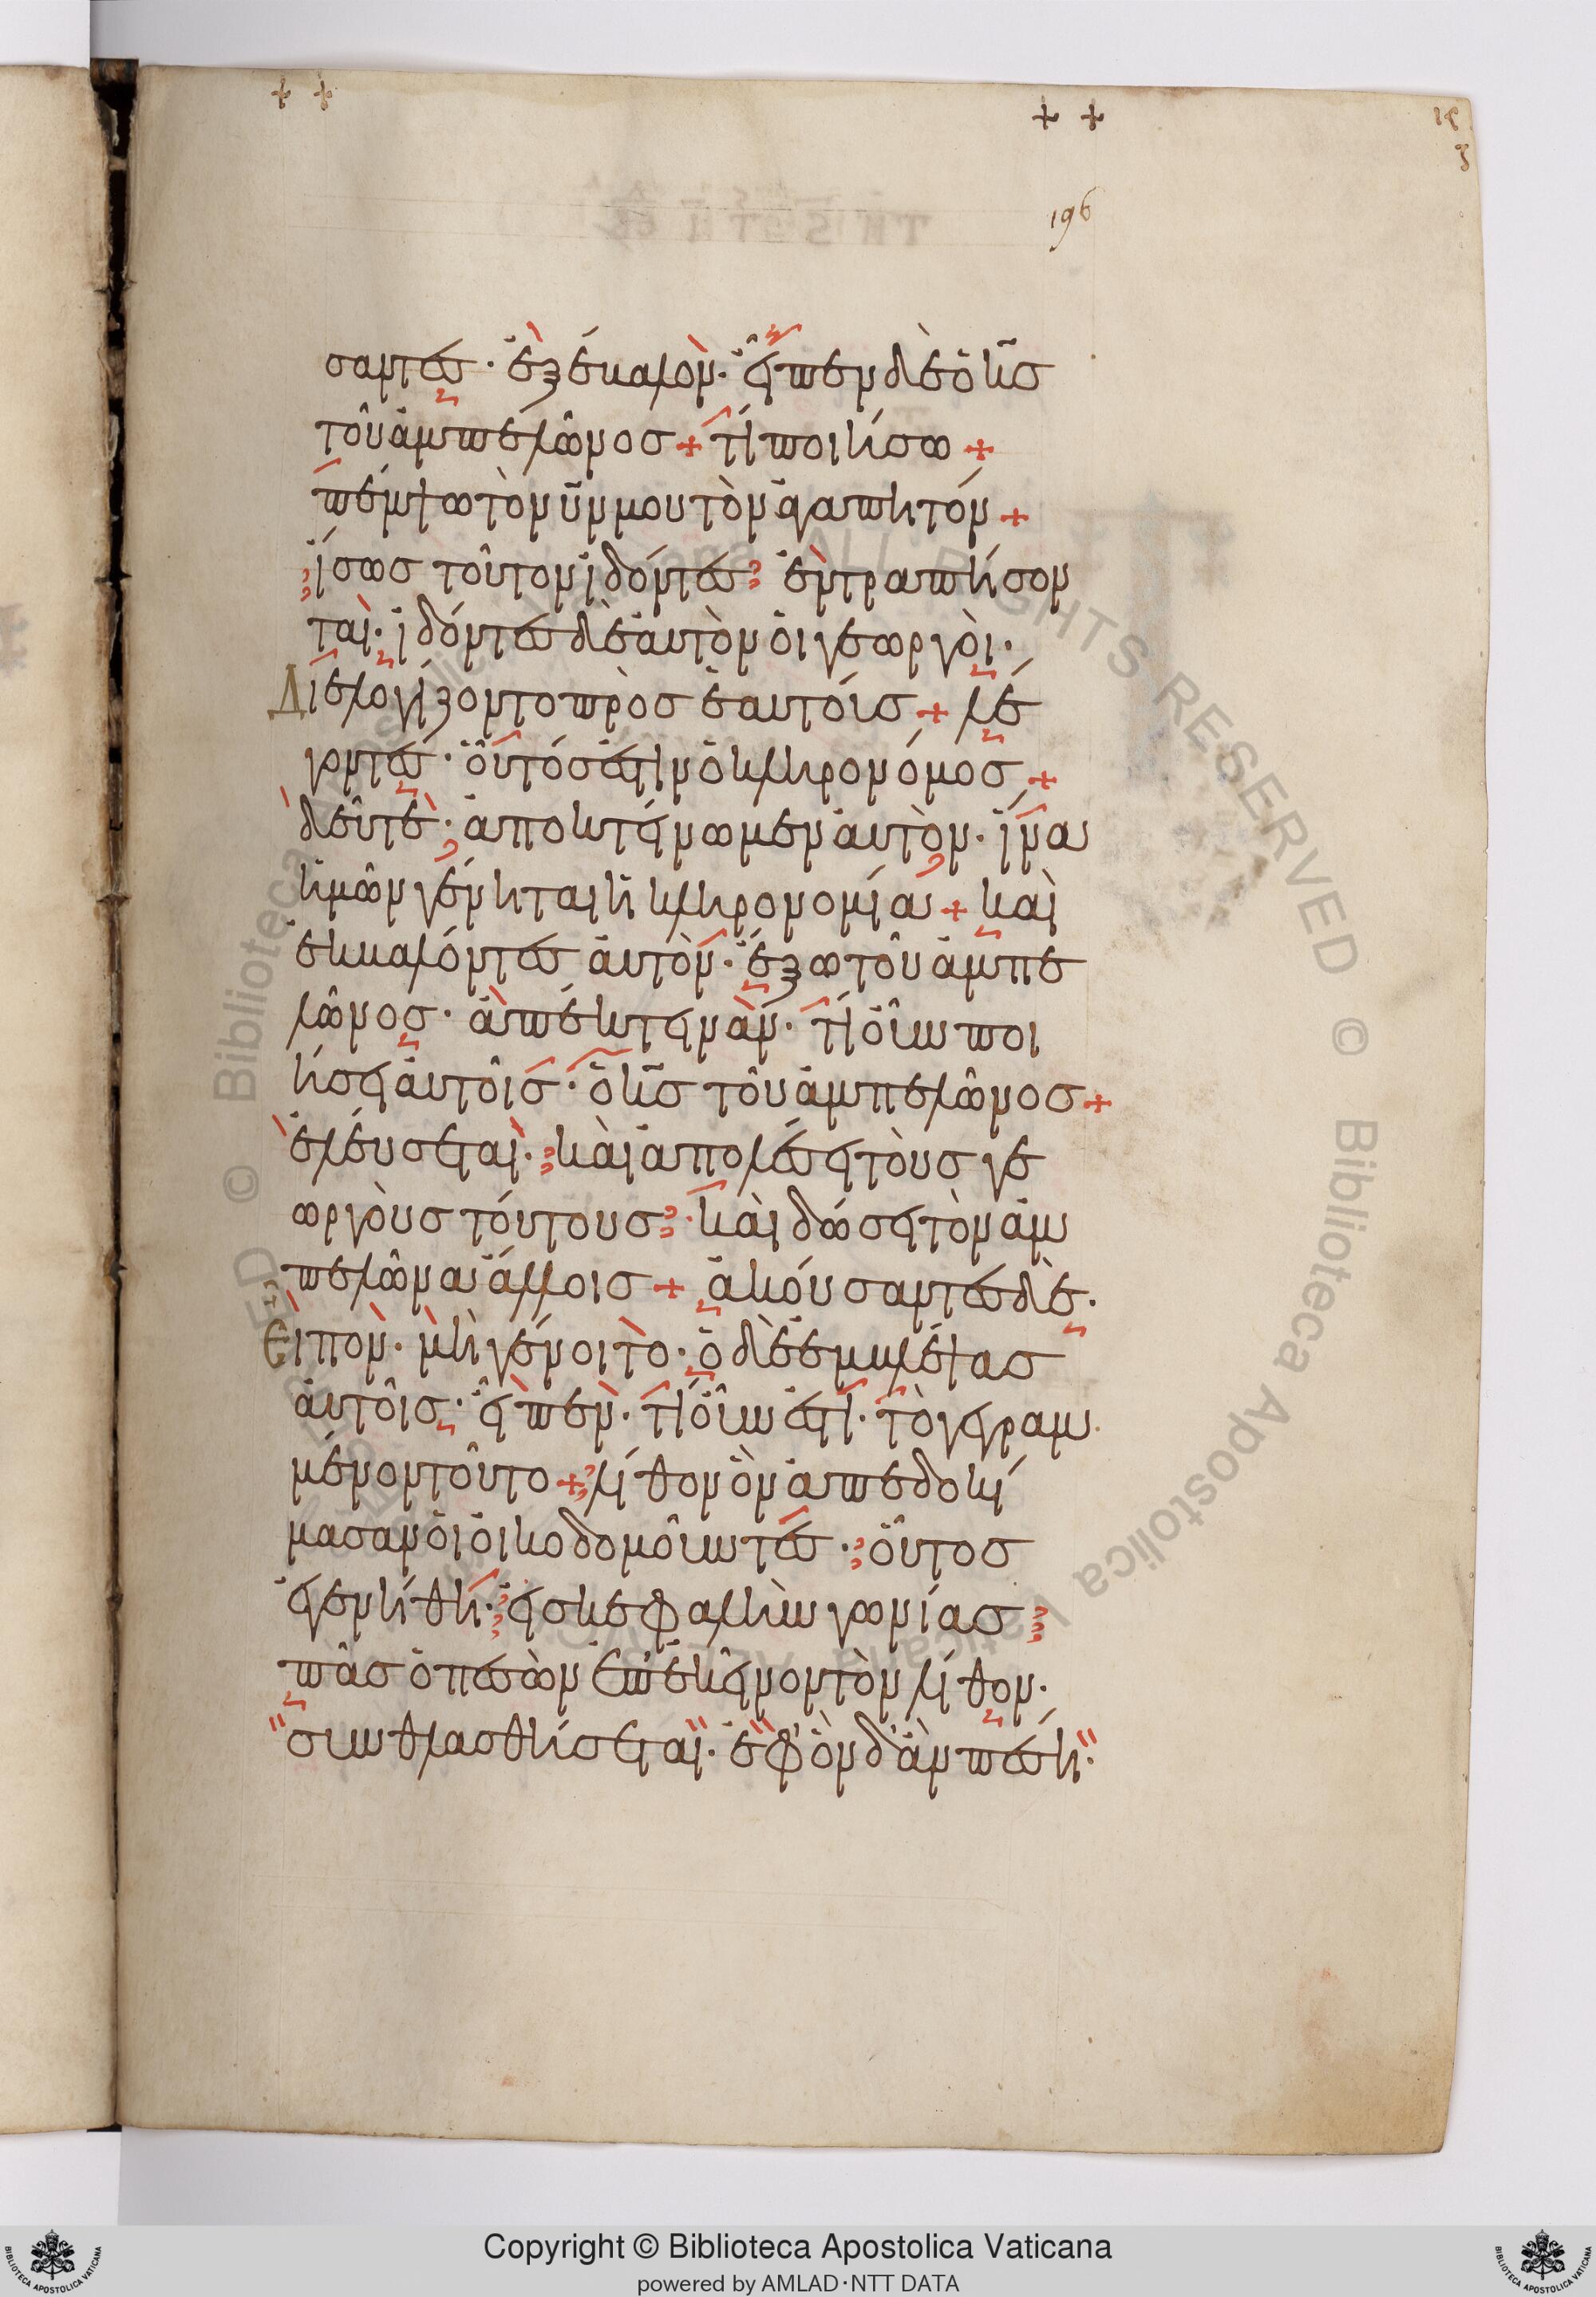 196
σαντες· ἐξέβαλον· εἶπεν δὲ ὁ κ̅ς̅
τοῦ ἀμπελῶνος + τί ποιήσω +
πέμψω τὸν υ̅ν̅ μου τὸν ἀγαπητόν +
ἴσως τοῦτον ἰδόντες ἐντραπήσον
ται· ἰδόντες δὲ αὐτὸν οἱ γεωργοὶ·
Διελογίζοντο πρὸς ἑαυτούς + λέ
γοντες· οὗτός ἐστιν ὁ κληρονόμος +
δεῦτε· ἀποκτείνωμεν αὐτὸν· ἵνα
ἡμῶν γένηται ἡ κληρονομία + καὶ
ἐκβαλόντες αὐτὸν· ἔξω τοῦ ἀμπε
λῶνος· ἀπέκτειναν· τί οὖν ποι
ήσει αὐτοῖς· ὁ κ̅ς̅ τοῦ ἀμπελῶνος +
ἐλεύσεται· καὶ ἀπολέσει τοὺς γε
ωργοὺς τούτους· καὶ δώσει τὸν ἀμ
πελῶνα ἄλλοις + ἀκούσαντες δὲ·
Εἶπον· μὴ γένοιτο· ὁ δὲ ἐμβλέψας
αὐτοῖς· εἶπεν· τί οὖν ἐστὶ· τὸ γεγραμ
μένον τοῦτο + λίθον ὃν ἀπεδοκί
μασαν οἱ οἰκοδομοῦντες· οὗτος
ἐγενήθη· εἰς κεφαλὴν γωνίας
πᾶς ὁ πεσὼν ἐπ' ἐκεῖνον τὸν λίθον·
συνθλασθήσεται· ἐφ' ὃν δ' ἂν πέσῃ·
© Biblioteca Apostolica Vaticana ALL RIGHTS RESERVED
Copyright © Biblioteca Apostolica Vaticana
powered by AMLAD·NTT DATA
BIBLIOTECA APOSTOLICA VATICANA
BIBLIOTECA APOSTOLICA VATICANA